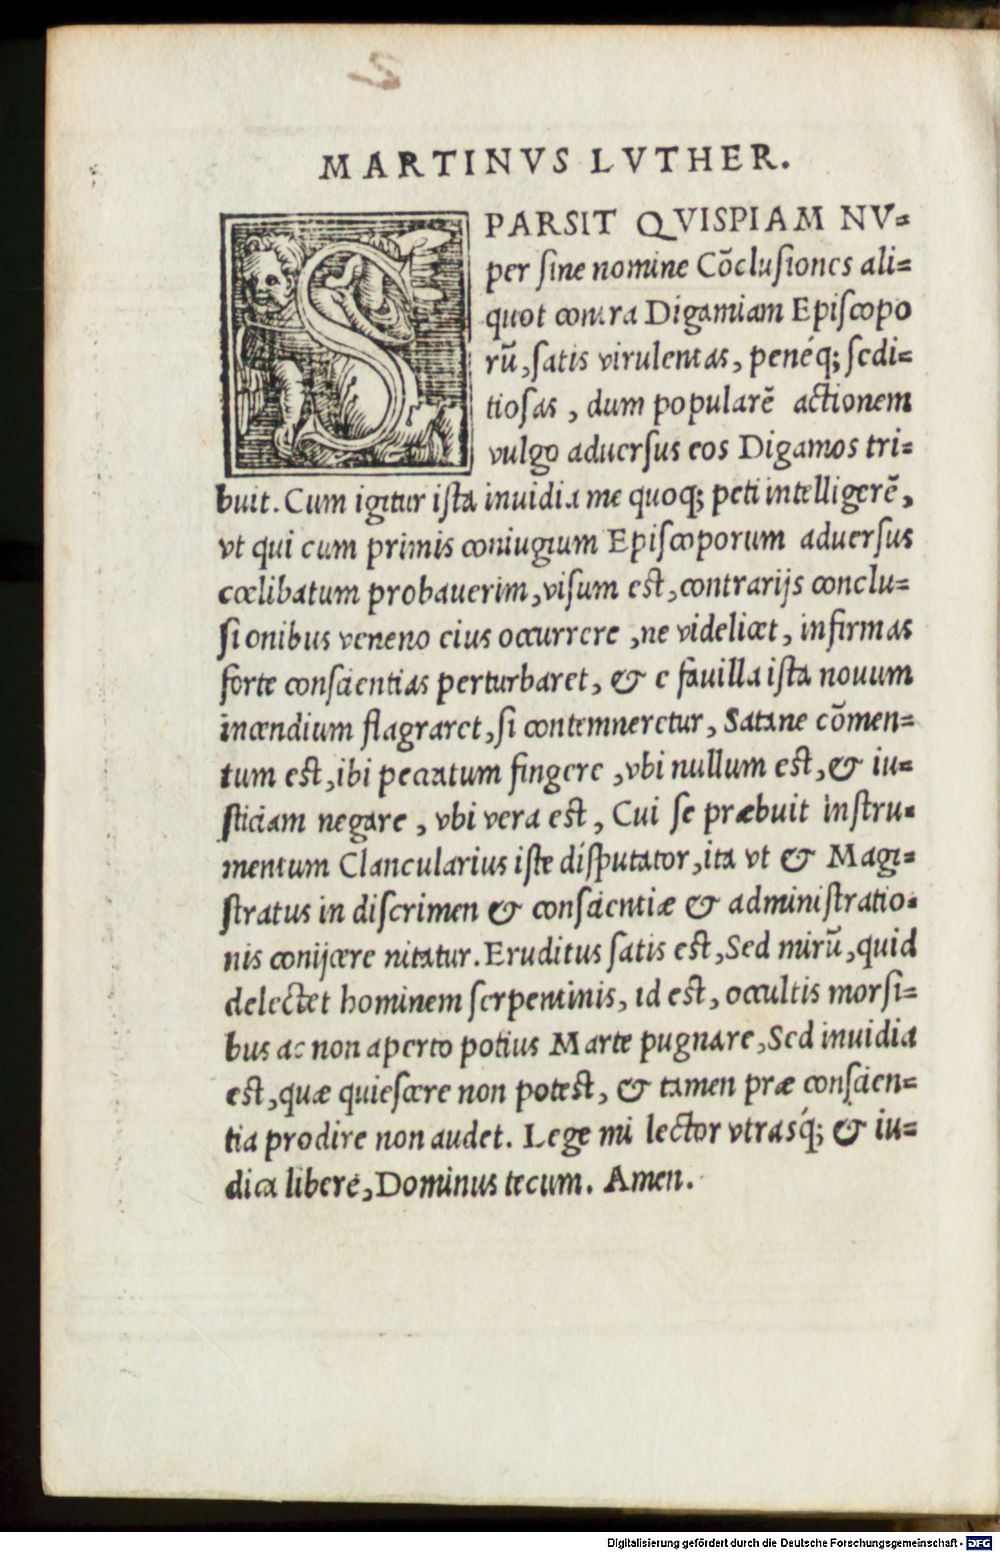 2
MARTINVS LVTHER.
SPARSIT QVISPIAM NV=
per ſine nomine Cõcluſiones ali=
quot contra Digamiam Epiſcopo
rũ, ſatis virulentas, penéq; ſedi=
tioſas, dum popularẽ actionem
vulgo aduerſus eos Digamos tri=
buit. Cum igitur iſta inuidia me quoq; peti intelligerẽ,
vt qui cum primis coniugium Epiſcoporum aduerſus
cœlibatum probauerim, viſum eſt, contrarijs conclu=
ſionibus veneno eius occurrere, ne videlicet, infirmas
forte conſcientias perturbaret, & e fauilla iſta nouum
incendium flagraret, ſi contemneretur, Satanæ cõmen=
tum eſt, ibi peccatum fingere, vbi nullum eſt, & iu=
ſticiam negare, vbi vera eſt, Cui ſe præbuit inſtru=
mentum Clancularius iſte diſputator, ita vt & Magi=
ſtratus in diſcrimen & conſcientiæ & adminiſtratio=
nis conijcere nitatur. Eruditus ſatis eſt, Sed mirũ, quid
delectet hominem ſerpentinis, id eſt, occultis morſi=
bus ac non aperto potius Marte pugnare, Sed inuidia
eſt, quæ quieſcere non poteſt, & tamen præ conſcien=
tia prodire non audet. Lege mi lector vtrasq́; & iu=
dica liberé, Dominus tecum. Amen.
Digitalisierung gefördert durch die Deutsche Forschungsgemeinschaft - DFG